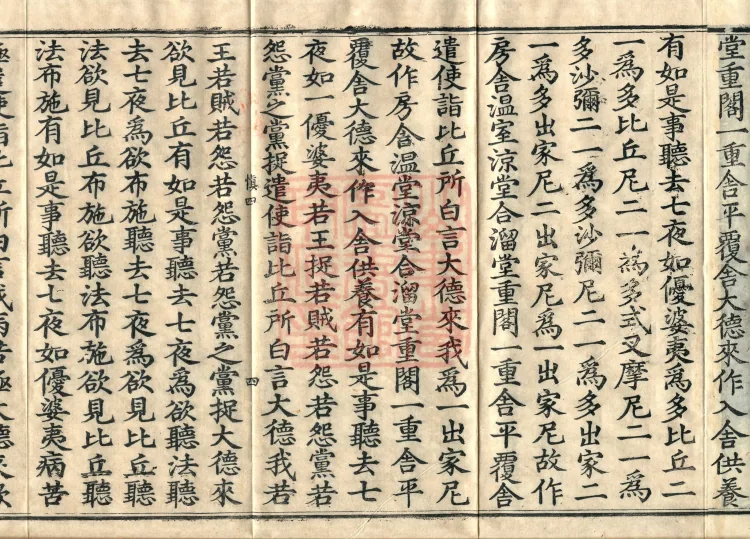 堂重閣一重舍平覆舍大德來作入舍供養
有如是事聽去七夜如優婆夷爲多比丘二
一爲多比丘尼二一爲多式叉摩尼二一爲
多沙彌二一爲多沙彌尼二一爲多出家二
一爲多出家尼二出家尼爲一出家尼故作
房舍温室涼堂合溜堂重閣一重舍平覆舍
遣使詣比丘所白言大德來我爲一出家尼
故作房舍温堂涼堂合溜堂重閣一重舍平
覆舍大德來作入舍供養有如是事聽去七
夜如一優婆夷若王捉若賊若怨若怨黨若
怨黨之黨捉遣使詣比丘所白言大德我若
慎四 四
王若賊若怨若怨黨若怨黨之黨捉大德來
欲見比丘有如是事聽去七夜爲欲聽法聽
去七夜爲欲布施聽去七夜爲欲見比丘聽
法欲見比丘布施欲聽法布施欲見比丘聽
法布施有如是事聽去七夜如優婆夷病苦
極遣使詣比丘所白言我病苦極大德來欲